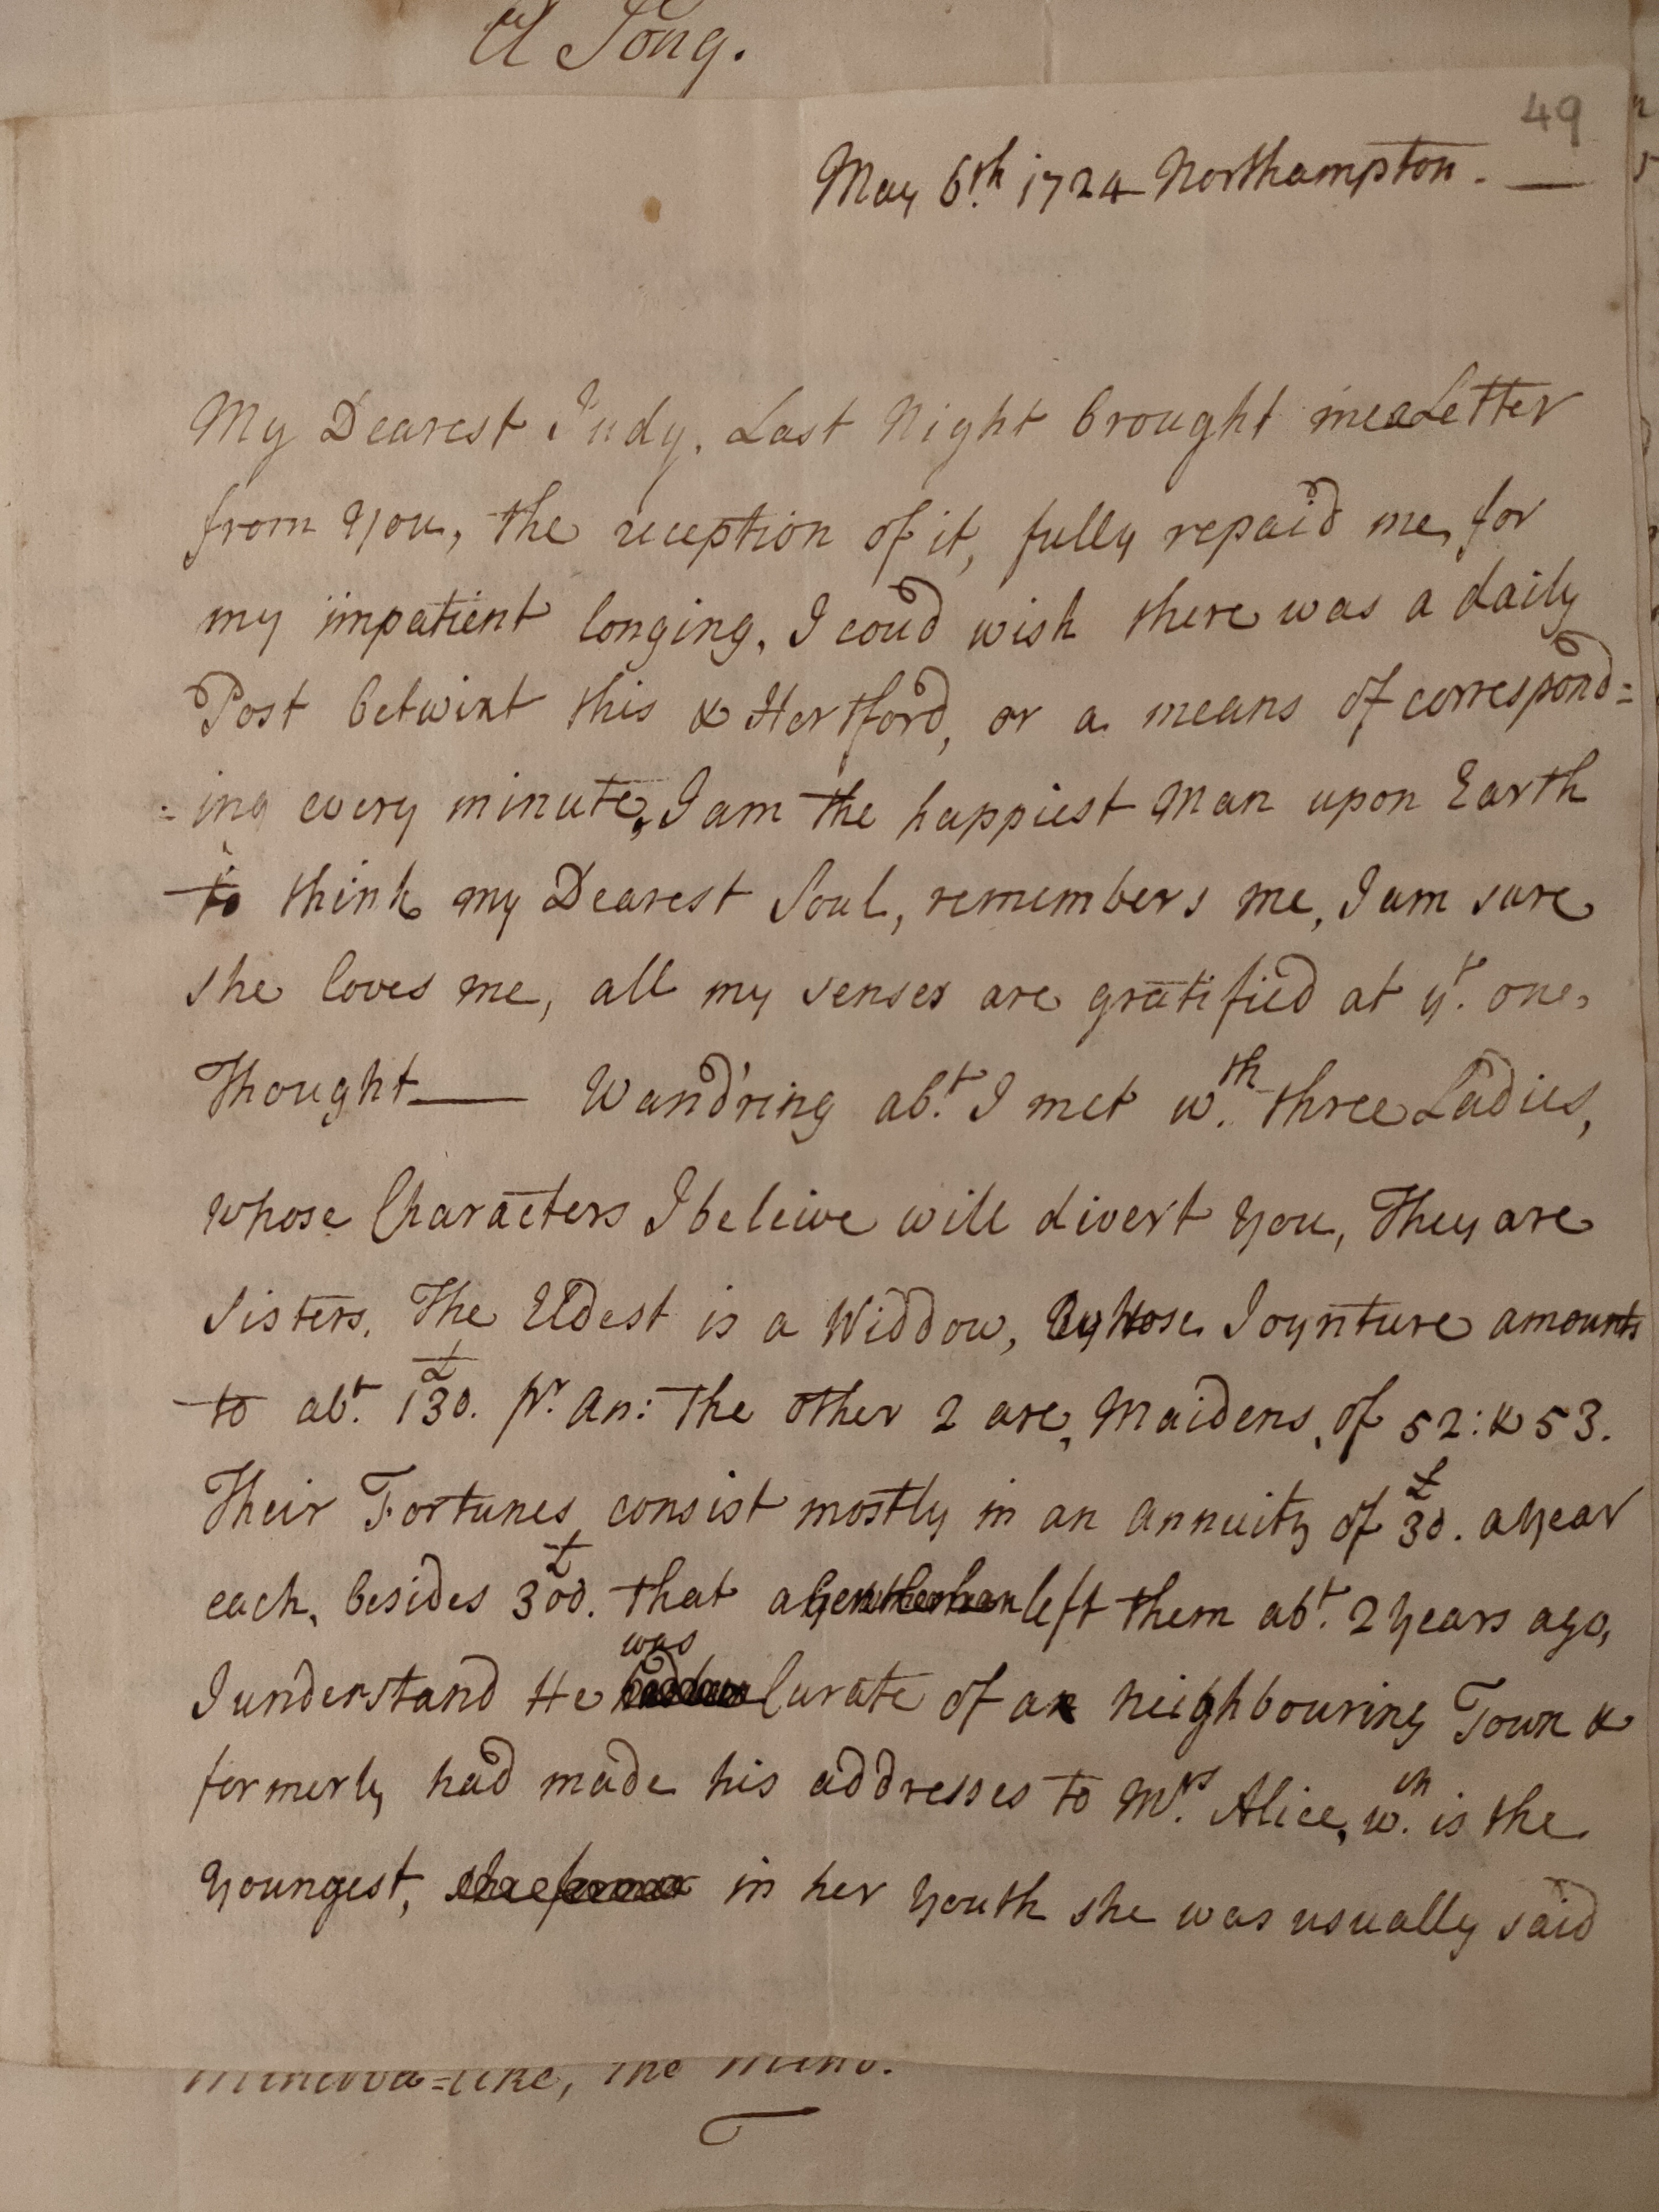 A Song.
49
May 6th. 1724 Northampton. —
My Dearest Judy. Last Night brought me a Letter
from you, the reception of it, fully repaid me, for
my impatient longing, I coud wish there was a daily
Post betwixt this & Hertford, or a means of correspond=
=ing every minute, I am the happiest Man upon Earth
to think my Dearest Soul, remembers me, I am sure
she loves me, all my senses are gratified at yt. one
Thought — Wand'ring abt. I met wth. three Ladies,
whose Characters I beleive will divert you, They are
Sisters. The Eldest is a Widdow, whose Joynture amounts
to abt. £130. pr. an: The other 2 are, Maidens, of 52: & 53.
Their Fortunes consist mostly in an annuity of £30. a year
each, besides £300. that a Gentleman left them abt. 2 years ago,
I understand He was Curate of a neighbouring Town &
formerly had made his addresses to Mrs. Alice, wch. is the
youngest, in her youth she was usually said
Minerva=like, the Mind.